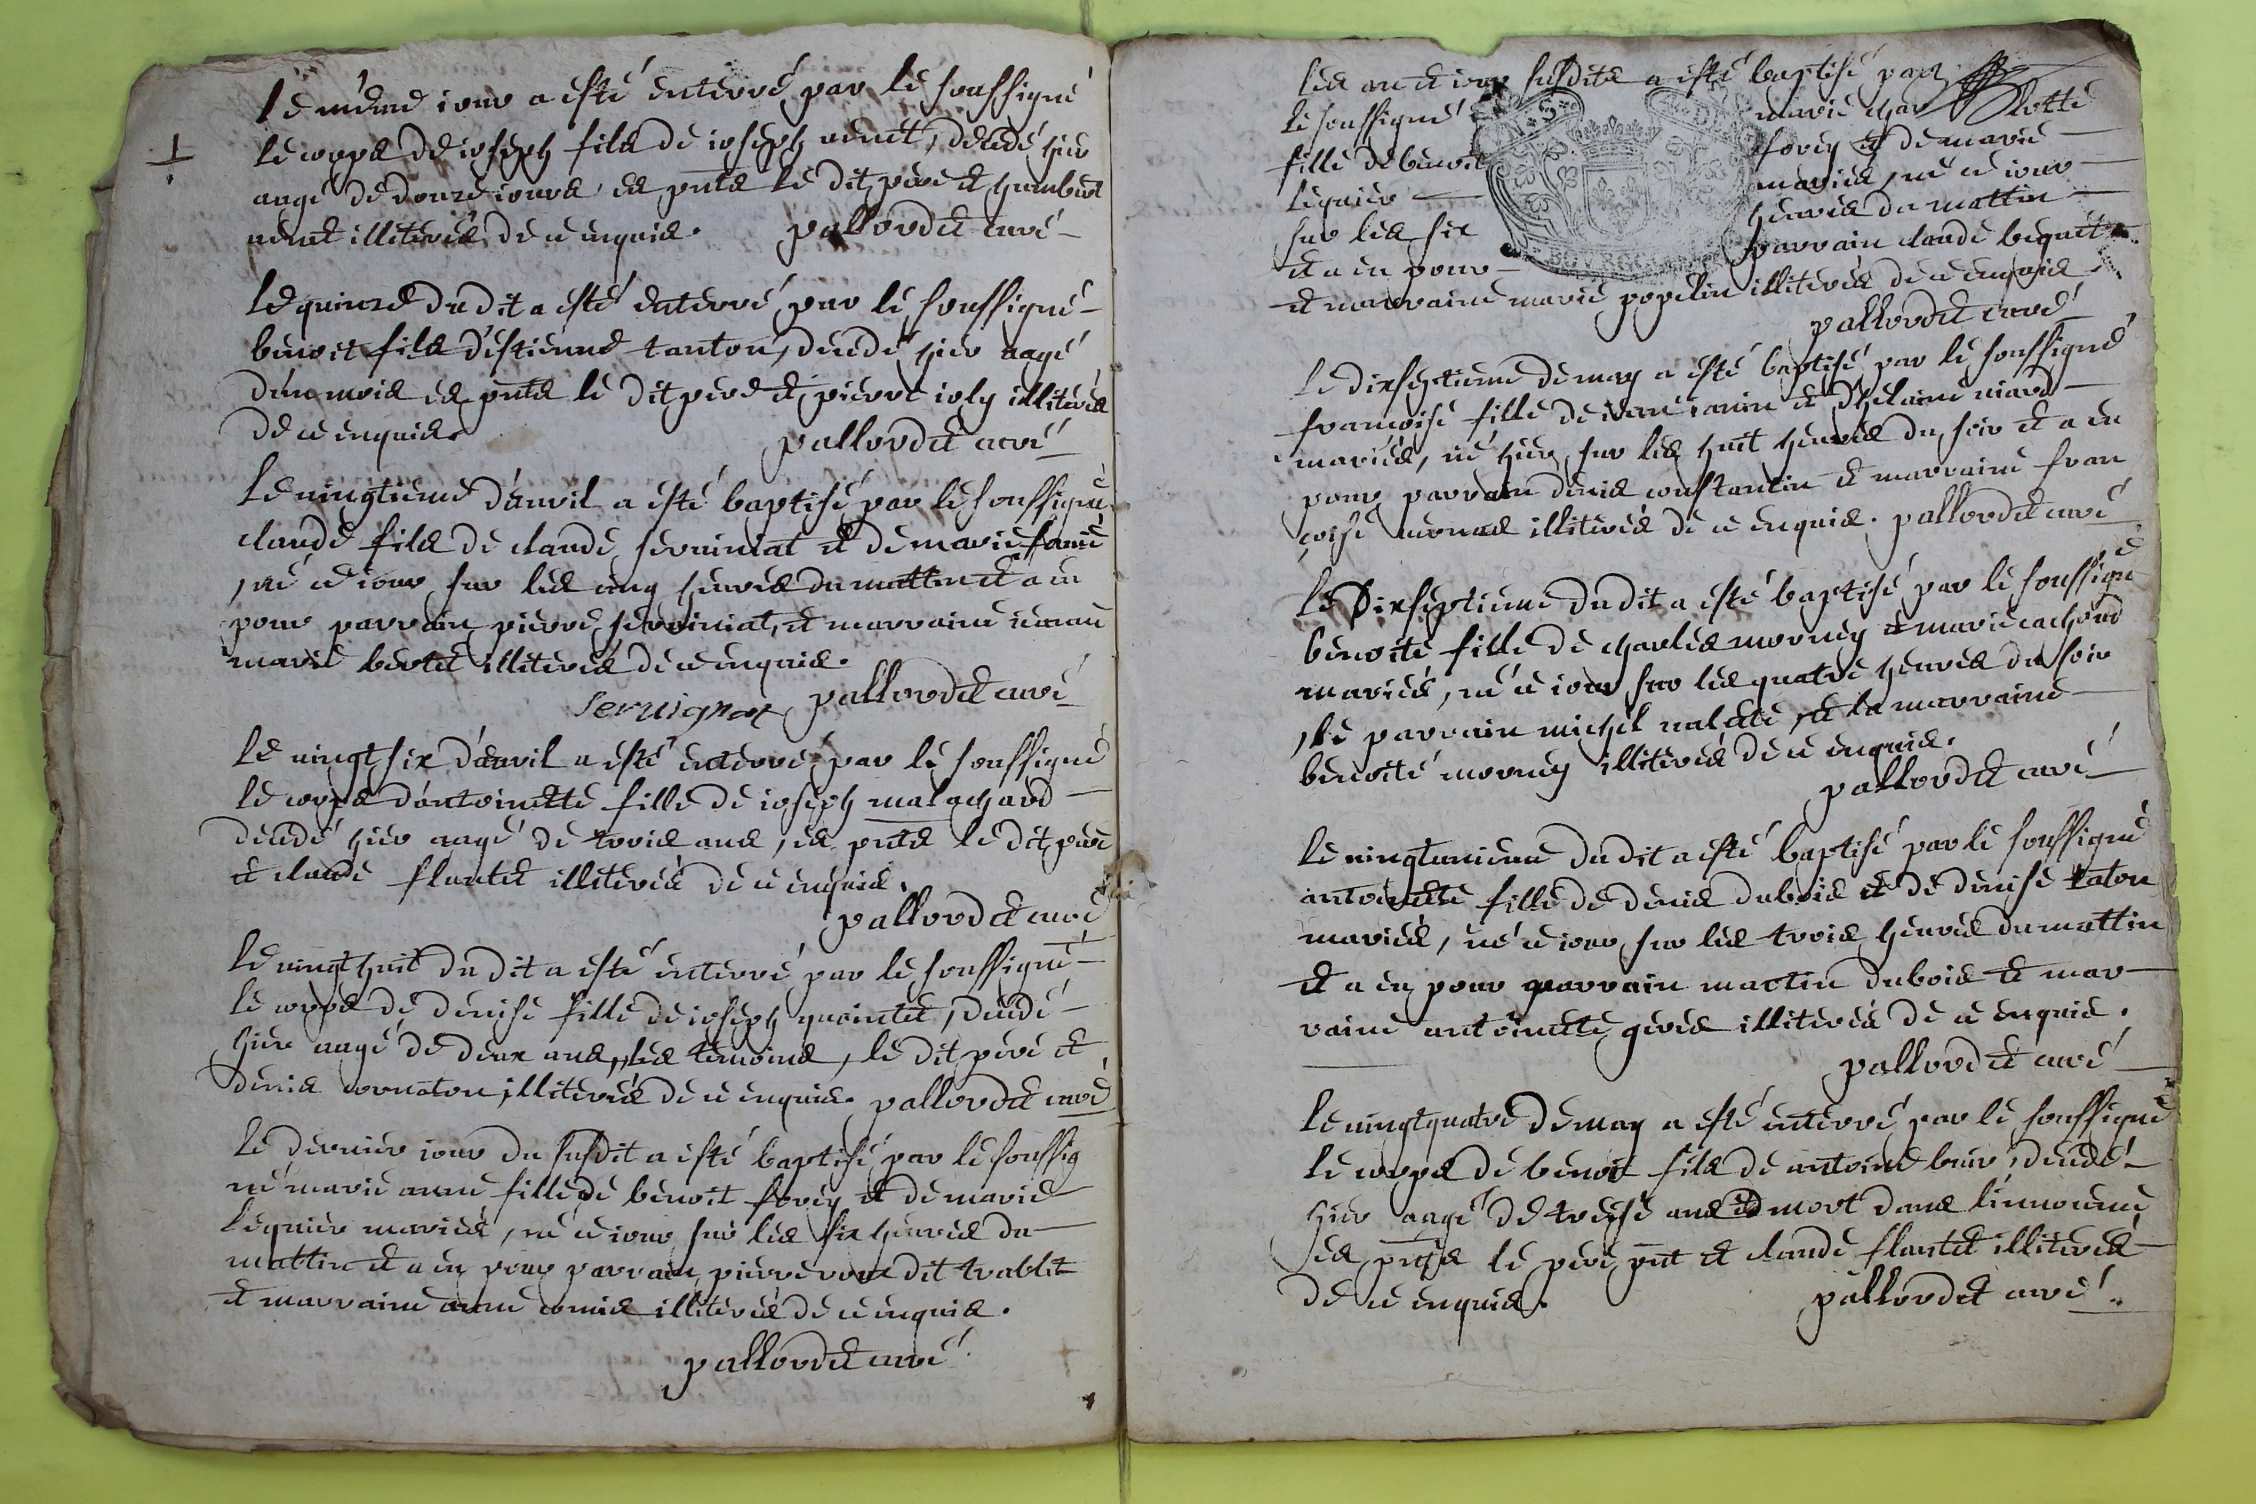 le même iour a esté enterré par le soussigné
le corps de ioseph fils de ioseph uenet, decedé hier
aagé de douze iours es pnts le dit pere et humbert
uenet illiterés de ce enquis. pallordet curé
le quinze du dit a esté enterré par le soussigné
benoit fils d'estienne tanton, decedé hier aagé
d'un mois es pnts le dit pere et pierre ioly illiterés
de ce enquis. pallordet curé
le vingtieme d'auril a esté baptisé par le soussigné
claude fils de claude seruiniat et de marie
né ce iour sur les cinq heures du mattin et a eu
pour parrain pierre seruiniat, et marraine
marie bertet illiterés de ce enquis.
seruignat pallordet curé
le vingt six d'auril a esté enterré par le soussigné
le corps d'antoinette fille de ioseph malachard
decedé hier aagé de trois ans, es pnts le dit pere
et claude flantet illiterés de ce enquis.
pallordet curé
le vingt huit du dit a esté enterré par le soussigné
le corps de denise fille de ioseph quointet, decedé
hier aagé de deux ans, les temoins, le dit pere et
denis cornaton, illiterés de ce enquis. pallordet curé
le dernier iour du susdit a esté baptisé par le soussig
né marie anne fille de benoit forey et de marie
lequier mariés, né ce iour sur les six heures du
mattin et a eu pour parrain pierre dit trablet
et marraine anne comis illiterés de ce enquis.
pallordet curé
les an et iour susdits a esté baptisé par
le soussigné marie char lotte
fille de benoit forey et de marie
lequier mariés, né ce iour
sur les six heures du mattin
et a eu pour parrain claude bequet
et marraine marie popelin illiterés de ce enquis
pallordet curé
le dixseptieme de may a esté baptisé par le soussigné
francoise fille de ianin et d'helaine niard
mariés, né hier sur les huit heures du soir et a eu
pour parrain denis constantin et marraine fran
coise illiterés de ce enquis. pallordet curé
le dixseptieme du dit a esté baptisé par le soussigné
benoite fille de charles morney et marie cachard
mariés, né ce iour sur les quatre heures du soir
le parrain michel et la marraine
benoite morney illiterés de ce enquis.
pallordet curé
le vingtunieme du dit a esté baptisé par le soussigné
antoinette fille de denis dubois et de denise taton
mariés, né ce iour sur les trois heures du mattin
et a eu pour parrain martin dubois et mar
raine antoinette illiterés de ce enquis.
pallordet curé
le vingtquatre de may a esté enterré par le soussigné
le corps de benoit fils de antoine buir, decedé
hier aagé de treise ans et mort dans
es pnts le pere pnt et claude flantet illiterés
de ce enquis. pallordet curé